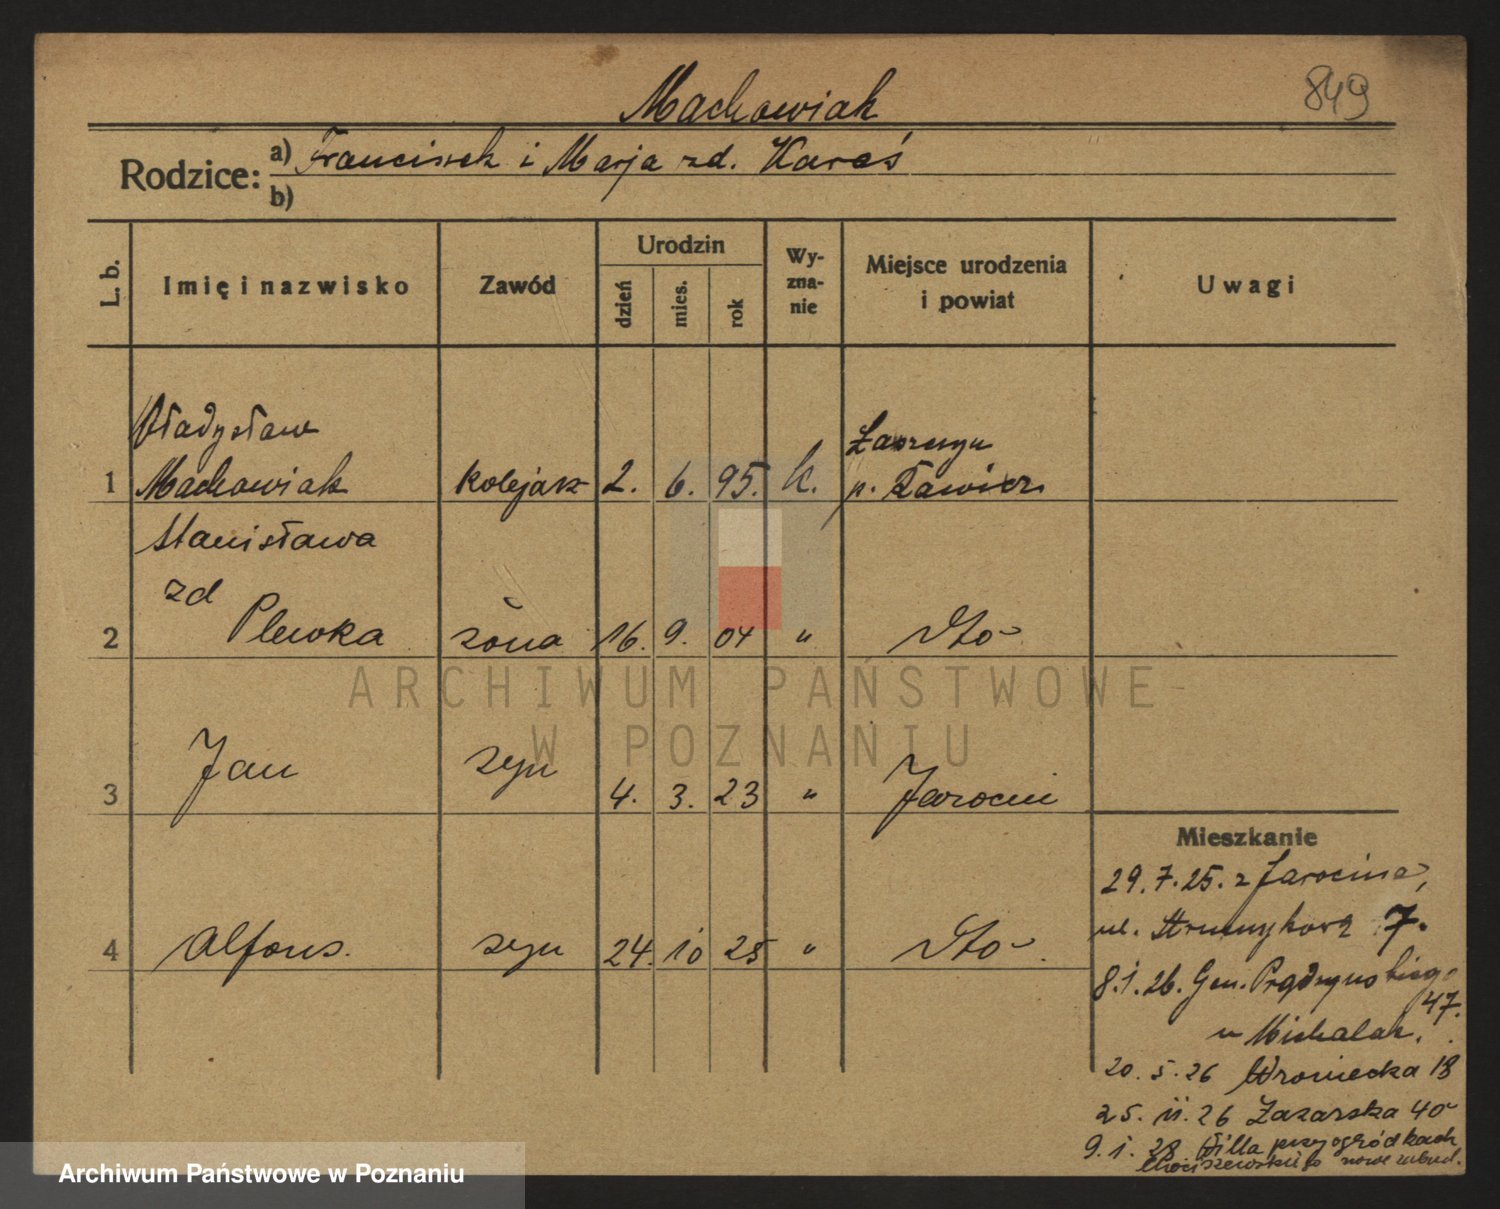 849
Machowiak
Rodzice: a) Franciszek i Marja zd. Karaś
b)
L. b.
Imię i nazwisko
Zawód
Urodzin
dzień
mies.
rok
Wy-
zna-
nie
Miejsce urodzenia
i powiat
Uwagi
Władysław
1 Machowiak kolejarz 2. 6. 95. k.
p. Rawicz
Stanisława
zd
2 Plewka żona 16. 9. 04 " dto
3 Jan syn 4. 3. 23 " Jarocin
4 Alfons. syn 24. 10 25 " dto
Mieszkanie
29.7.25. z Jarocina,
ul. 7.
8.1.26. Gen. Prądzyńskiego
47.
u Michalak.
20.5.26 Wroniecka 18
25.11.26 Łazarska 40
9.1.28 Willa przy ogródkach
nowe zabud.
ARCHIWUM PAŃSTWOWE
W POZNANIU
Archiwum Państwowe w Poznaniu